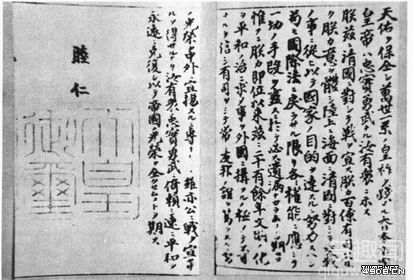 天佑ヲ保全シ萬世一系ノ皇祚ヲ踐メル大日本帝國
皇帝ハ忠實勇武ナル汝有衆ニ示ス
朕茲ニ清國ニ對シテ戰ヲ宣ス朕カ百僚有司ハ
朕カ意ヲ體シ陸上ニ海面ニ清國ニ對シテ交戰
ノ事ニ從ヒ以テ國家ノ目的ヲ達スルニ努力スヘシ
苟モ國際法ニ戾ラサル限リ各々權能ニ應シテ
一切ノ手段ヲ盡スニ於テ必ス遺漏ナカラムコトヲ期セヨ
惟フニ朕カ即位以來茲ニ二十有餘年文明ノ化
ヲ平和ノ治ニ求メ事ヲ外國ニ構フルノ極メテ不可ナ
ルヲ信シ有司ヲシテ常ニ友邦ノ誼ヲ篤クスルニ
ノ光榮ヲ中外ニ宣揚スルニ專ナリト雖亦公ニ戰ヲ宣セサ
ルヲ得サルナリ汝有衆ノ忠實勇武ニ倚賴シ速ニ平和ヲ
永遠ニ克復シ以テ帝國ノ光榮ヲ全クセムコトヲ期ス
睦仁
天皇御璽